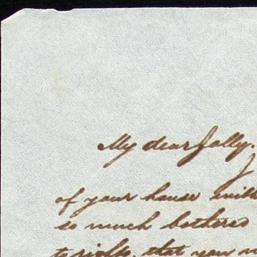 My dear Sally.
of your house
so much bothered
to rights, that your